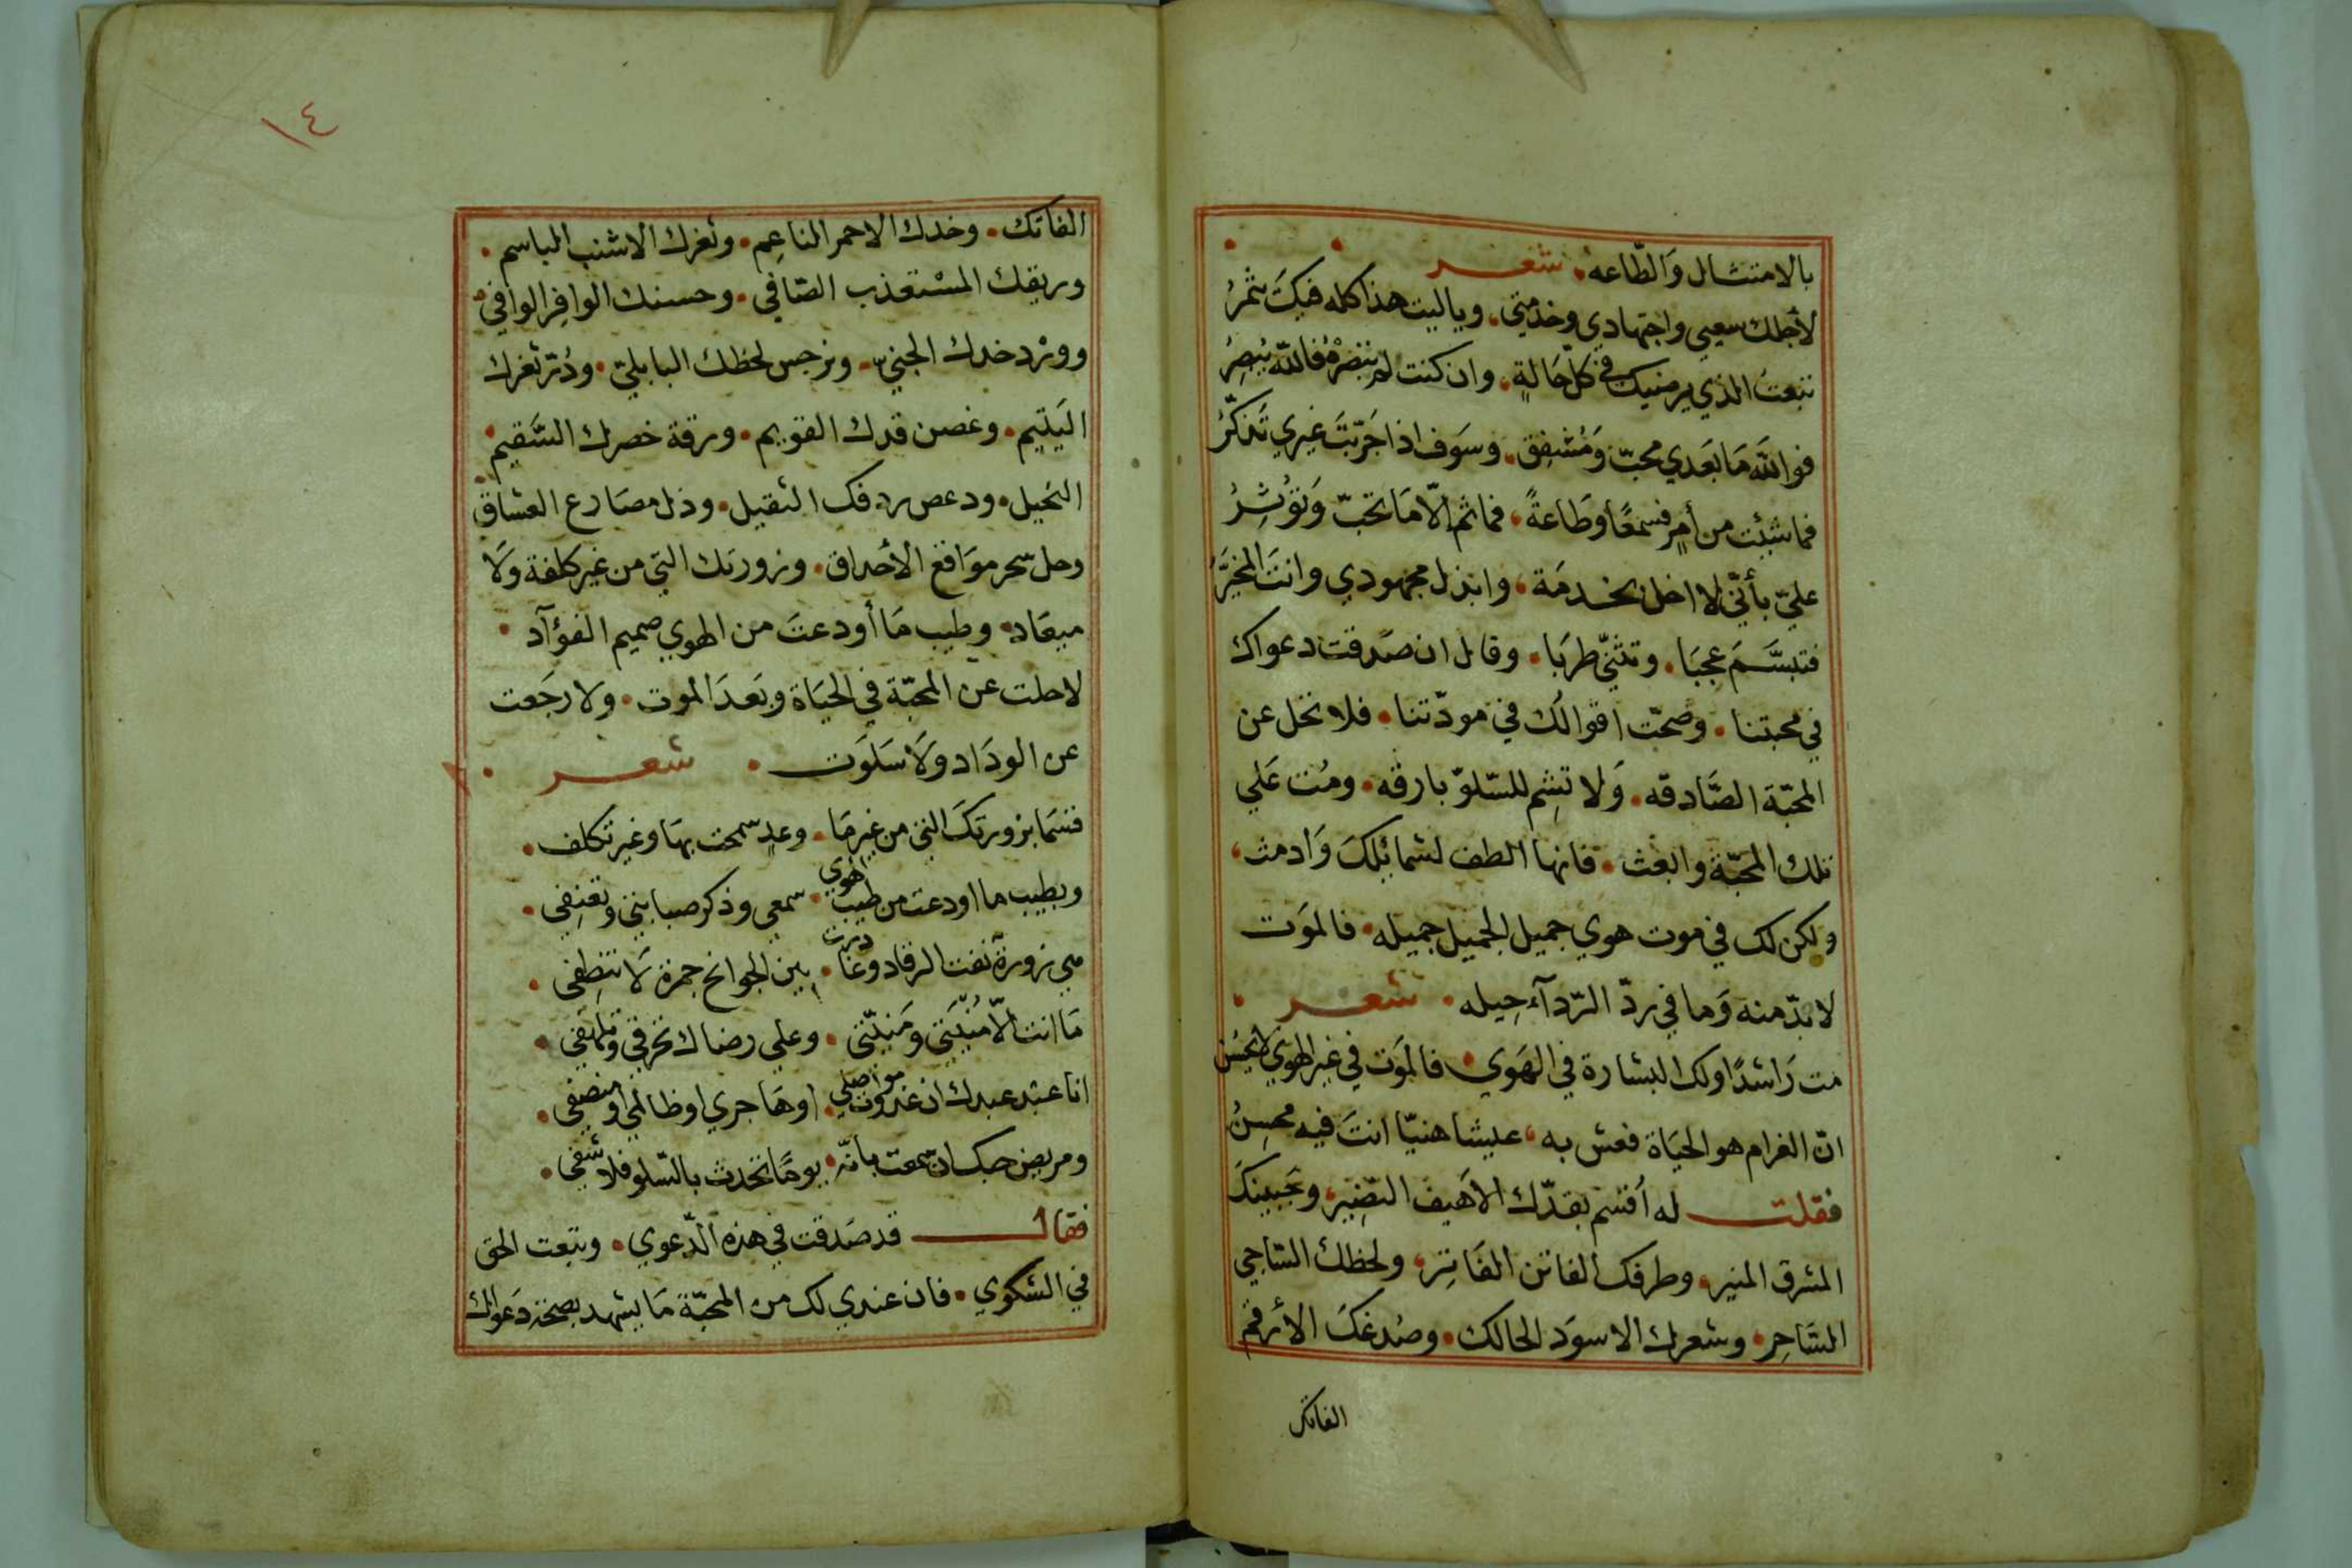 بالامتثال وَالطّاعه • شعر
لأجلك سعيي واجتهادي وخدمتي • وياليت هذا كله فيكَ يثمرُ
تبعتُ الذي يرضيك في كلّ حَالةٍ • وان كنت لم تبصرْهُ فاللّه يُبصِرُ
فواللّه مَا بَعدي محبّ وَمُشفِق • وسَوف اذا جَرّبتَ غيري تَذكّرُ
فما شِئت من أمرٍ فسمعًا وطَاعةً • فما ثم الّا مَا تحبّ وَتؤثِرُ
عليّ بأنّي لا اخل بخدمَة • وابذل مجهودي وانتَ المخيَّرُ
فتبسَّمَ عجبَا • وتثنّي طربَا • وقال ان صَدقت دعواك
في محبتنا • وصحّت اقوالك في مودّتنا • فلا تحل عن
المحبّة الصَّادقه • وَلا تشِم للسّلوّ بارقه • ومُت عَلي
تلك المحَبّة وابعث • فانها الطف لشمائلكَ وَادمث •
ولكن لك في موت هوي جميل الجميل جميله • فالموَت
لا بدّ منه وَما في ردّ الرّدآء حِيله • شعر •
مت رَاشدًا ولك البشارة في الهَوي • فالموَت في غير الهوي لا يحسُن
انّ الغرام هو الحيَاة فعش به • عيشا هنيّا انتَ فيه محسِنُ
فقلت له أقسم بقدّك الاهيف النضِير • وبجَبينكَ
المشرق المنير • وطرفك الفاتن الفَاتِر • ولحظك السَّاجي
السَّاحِر • وشعرك الاسوَد الحالك • وصُدغكَ الأرقم
الفاتك
١٤
الفاتك • وخدك الاحمر الناعِم • وثغرك الاشنب الباسم •
وريقك المسْتعذب الصّافي • وحسنك الوافِر الوافي •
ووَرْد خدك الجنيّ • ونرجس لحظك البابليّ • ودُرّ ثغرك
اليَتيم • وغصن قدك القويم • ورقة خصرك السَّقيم •
النحيل • ودعص ردفك الثقيل • وذل مصَارع العشاق •
وحل سحر موَاقع الأحداق • وزورتك التي من غير كلفة وَلَا
ميعَاد • وطيب مَا أودعتَ من الهوي صميم الفؤآد •
لا حلت عن المحبّة في الحيَاة وبَعدَ الموت • ولا رجَعت
عن الودَاد وَلَا سَلوَت • شعر •
قسَمَا بزورتكَ التي من غير مَا • وعدٍ سمحت بهَا وغير تكلف •
وبطيب ما اودعت من طيب الهوي • سمعي وذكر صبابتي وتعنِفي •
مي زورة نفت الرقاد وغادرت • بين الجوانح جمرة لَا تنطِفي •
مَا انت الّا مُنْيَتي ومَنيّتي • وعلي رضاك تحرقي وتلهفي •
انا عبْد عبدك ان غدوت مواصلي • او هَاجري او ظالمي او منصِفي •
ومريض حبك ان سمعت بانّه • يومًا تحدث بالسّلو فلا شفي •
فقال قد صَدقت في هذه الدّعوي • وتبعت الحق
في الشكوي • فان عندي لك من المحبّة مَا يشهد بصحَّةِ دَعواك